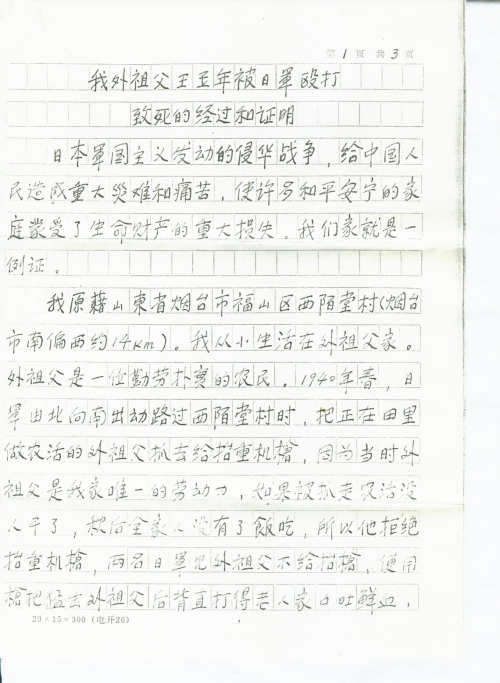 第1页 共3页
我外祖父王玉年被日軍殴打
致死的经过和证明
日本軍国主义发动的侵华战争，给中国人
民造成重大災难和痛苦，使许多和平安宁的家
庭蒙受了生命财产的重大损失。我们家就是一
例证。
我原藉山東省烟台市福山区西陌堂村(烟台
市南偏西约14km)。我从小生活在外祖父家。
外祖父是一位勤劳扑实的农民。1940年春，日
軍由北向南出动路过西陌堂村时，把正在田里
做农活的外祖父抓去给抬重机槍，因为当时外
祖父是我家唯一的劳动力，如果被抓走农活没
人干了，秋后全家人没有了飯吃，所以他拒绝
抬重机槍，两名日軍见外祖父不给抬槍，便用
槍把猛击外祖父后背直打得老人家口吐鲜血，
20×15=300（电开26）